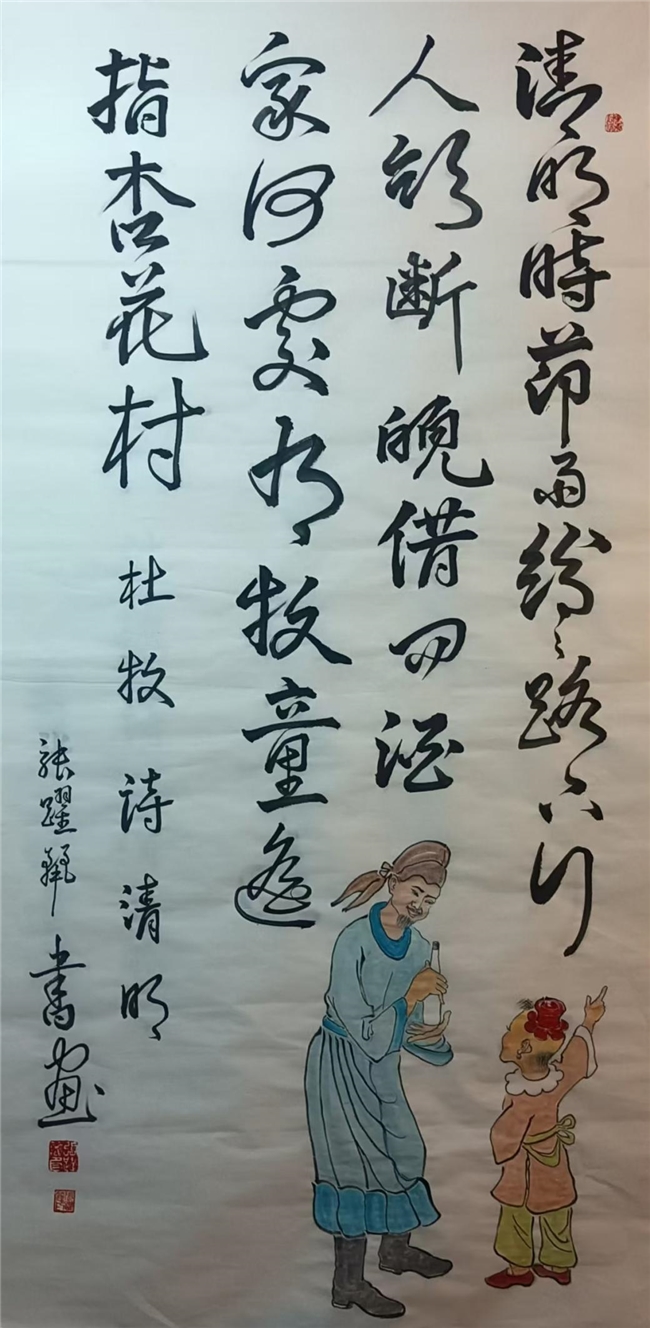 清明時節雨紛々路上行
人欲斷魂借問酒
家何處有牧童遙
指杏花村
杜牧詩清明
張躍書畫